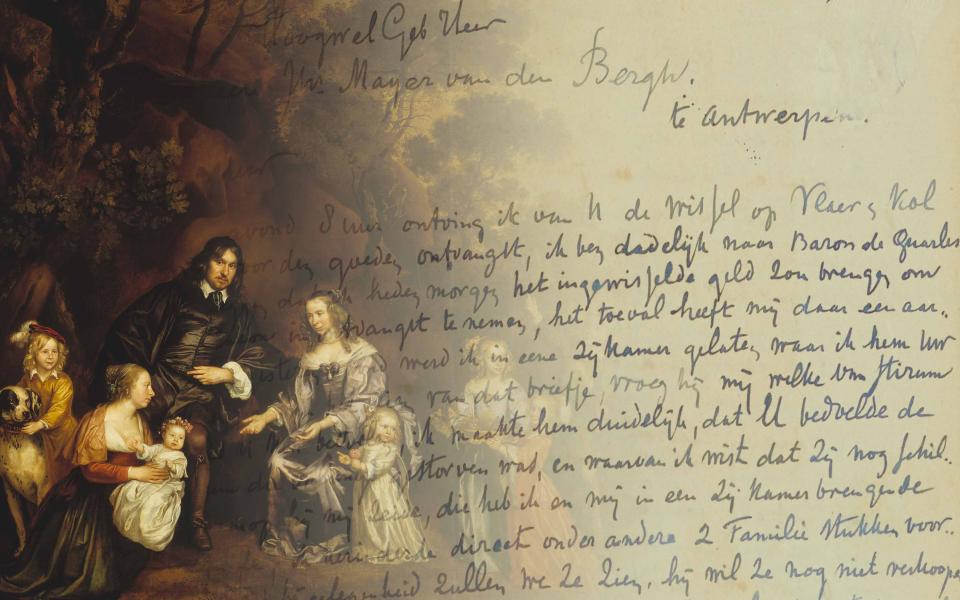 Hoogwel Geb Heer
en Jhr Mayer van den Bergh.
te Antwerpen.
avond 8 uur ontving ik van U de Wissel op Vlaer & Kol
voor den goeden ontvangst, ik ben dadelijk naar Baron de Quarles
dat heden morgen het ingewisselde geld zou brengen om
in ontvangst te nemen, het toeval heeft mij daar een aar„
werd ik in eene Zij Kamer gelaten waar ik hem Uw
van dat briefje, vroeg hij mij welke van Stirum
ik maakte hem duidelijk, dat U bedoelde de
gestorven was, en waarvan ik wist dat Zij nog schil„
hij mij Zeide, die heb ik en mij in een Zij Kamer brengende
direct onder andere 2 Familie stukken voor„
gelegenheid Zullen we Ze Zien, hij wil Ze nog niet verkoopen